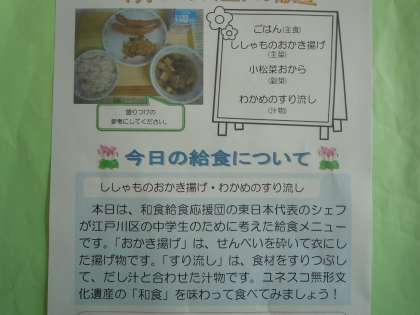 ごはん(主食)
ししゃものおかき揚げ
(主菜)
小松菜おから
(副菜)
わかめのすり流し
(汁物)
盛りつけの
参考にしてください。
今日の給食について
ししゃものおかき揚げ・わかめのすり流し
本日は、和食給食応援団の東日本代表のシェフ
が江戸川区の中学生のために考えた給食メニュー
です。「おかき揚げ」は、せんべいを砕いて衣にし
た揚げ物です。「すり流し」は、食材をすりつぶし
て、だし汁と合わせた汁物です。ユネスコ無形文
化遺産の「和食」を味わって食べてみましょう！